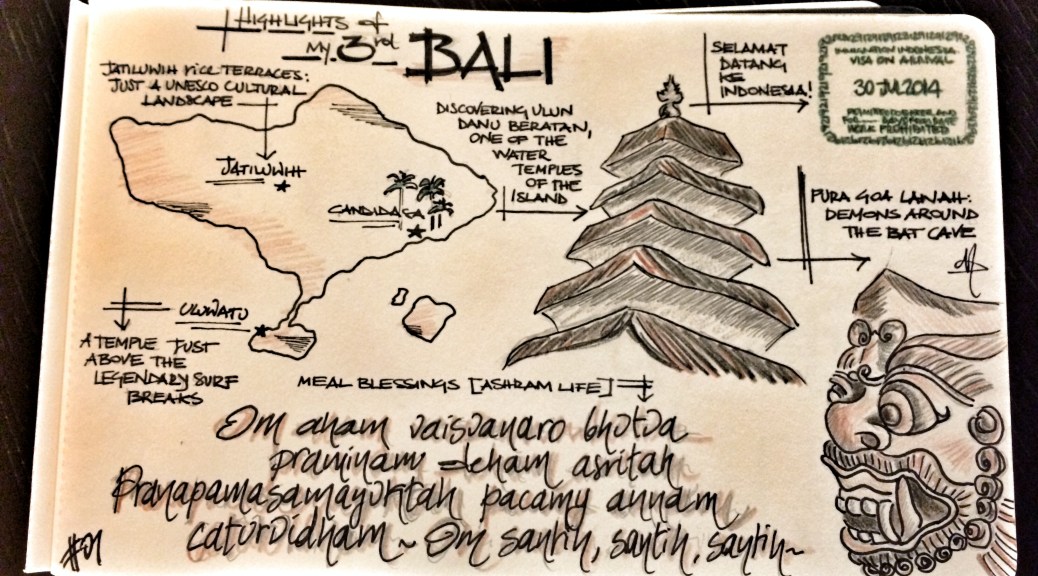 HIGHLIGHTS of
MY 3rd BALI
JATILUWIH RICE TERRACES:
JUST A UNESCO CULTURAL
LANDSCAPE
JATILUWIH
CANDIDASA
ULUWATU
A TEMPLE JUST
ABOVE THE
LEGENDARY SURF
BREAKS
DISCOVERING ULUN
DANU BERATAN,
ONE OF THE
WATER
TEMPLES
OF THE
ISLAND
SELAMAT
DATANG
KE
INDONESIA!
IMMIGRATION INDONESIA
VISA ON ARRIVAL
30 JUL 2014
WORK PROHIBITED
PURA GOA LAWAH:
DEMONS AROUND
THE BAT CAVE
MEAL BLESSINGS [ASHRAM LIFE]
Om aham vaisvanaro bhutva
praninam deham asritah
Pranapamasamayuktah pacamy annam
caturvidham ~ Om santih, santih, santih ~
#01